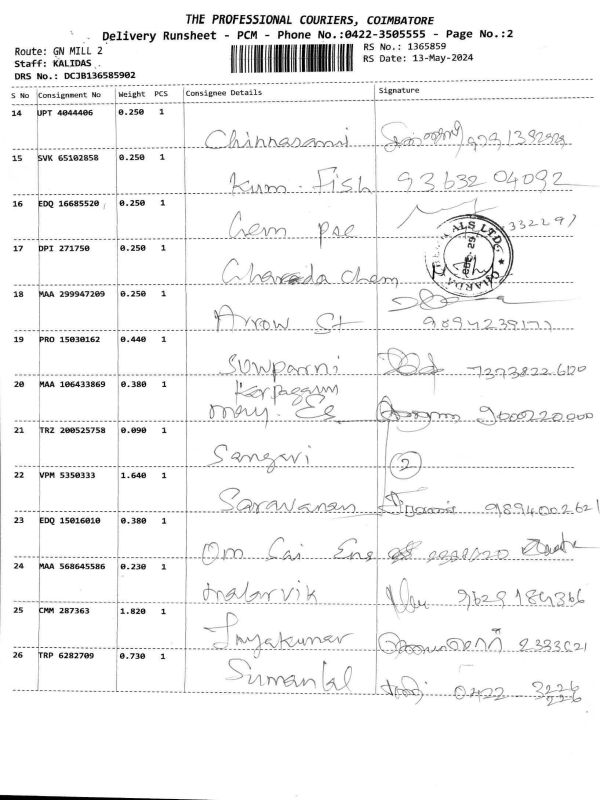 THE PROFESSIONAL COURIERS, COIMBATORE
Delivery Runsheet - PCM - Phone No.:0422-3505555 - Page No.:2
Route: GN MILL 2
RS No.: 1365859
Staff: KALIDAS
RS Date: 13-May-2024
DRS No.: DCJB136585902
S No Consignment No Weight PCS Consignee Details Signature
14 UPT 4044406 0.250 1
Chinnasami
15 SVK 65102858 0.250 1
Kum. Fish 93632 04092
16 EDQ 16685520 0.250 1
Gem pse
17 DPI 271750 0.250 1
Chem
18 MAA 299947209 0.250 1
Arrow St 9894239177
19 PRO 15030162 0.440 1
Sowparni 7373822600
20 MAA 106433869 0.380 1
Karpagam
9600220000
21 TRZ 200525758 0.090 1
Sangavi 2
22 VPM 5350333 1.640 1
Saravanan 9894002621
23 EDQ 15016010 0.380 1
Om Sai Eng
24 MAA 568645586 0.230 1
Malarvik 9629184366
25 CMM 287363 1.820 1
26 TRP 6282709 0.730 1
Sumanlal 0422 3226
226